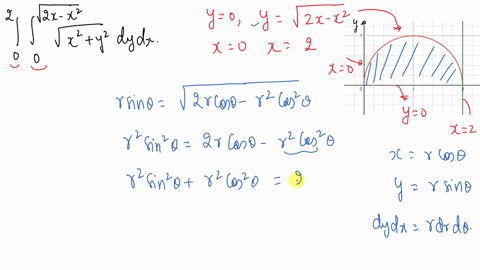 ∫₀² ∫₀^√(2x-x²) √(x²+y²) dy dx.
y=0, y = √(2x-x²)
x=0 x = 2
y
x=0
1
0
1
y=0
x=2
r sinθ = √(2r cosθ - r² cos²θ)
r² sin²θ = 2r cosθ - r² cos²θ
r² sin²θ + r² cos²θ = 2
x = r cosθ
y = r sinθ
dy dx = r dr dθ.